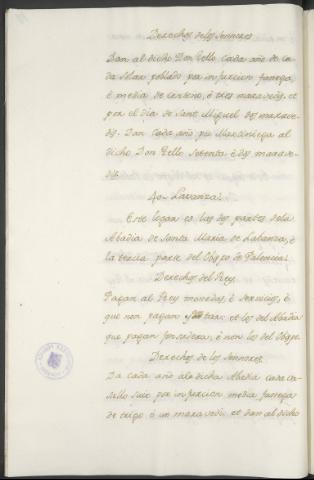 Derechos de los Sennores
Dan al dicho Don Tello cada año de ca-
da Mar poblado por infurcion fanega
é media de centeno, é tres maravedis, et
por el dia de Sant Miguel dos marave-
dis. Dan cada año por Martiniega al
dicho Don Tello setenta é dos marave-
dis.
40- Lavanza.
Este logar es las dos partes dela
Abadia de Santa Maria de Labanza, é
la tercia parte del Obispo de Palencia.
Derechos del Rey.
Pagan al Rey monedas, é servicios, é
que non pagan et los del Abadia
que pagan fonsadera, é non los del Obispo.
Derechos de los Sennores
Da cada año ala dicha Abadia cada ca-
sello suio por infurcion media fanega
de trigo é un maravedi, et dan al dicho